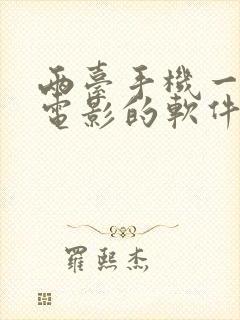 兩臺手機一
電影的軟件
羅熙杰